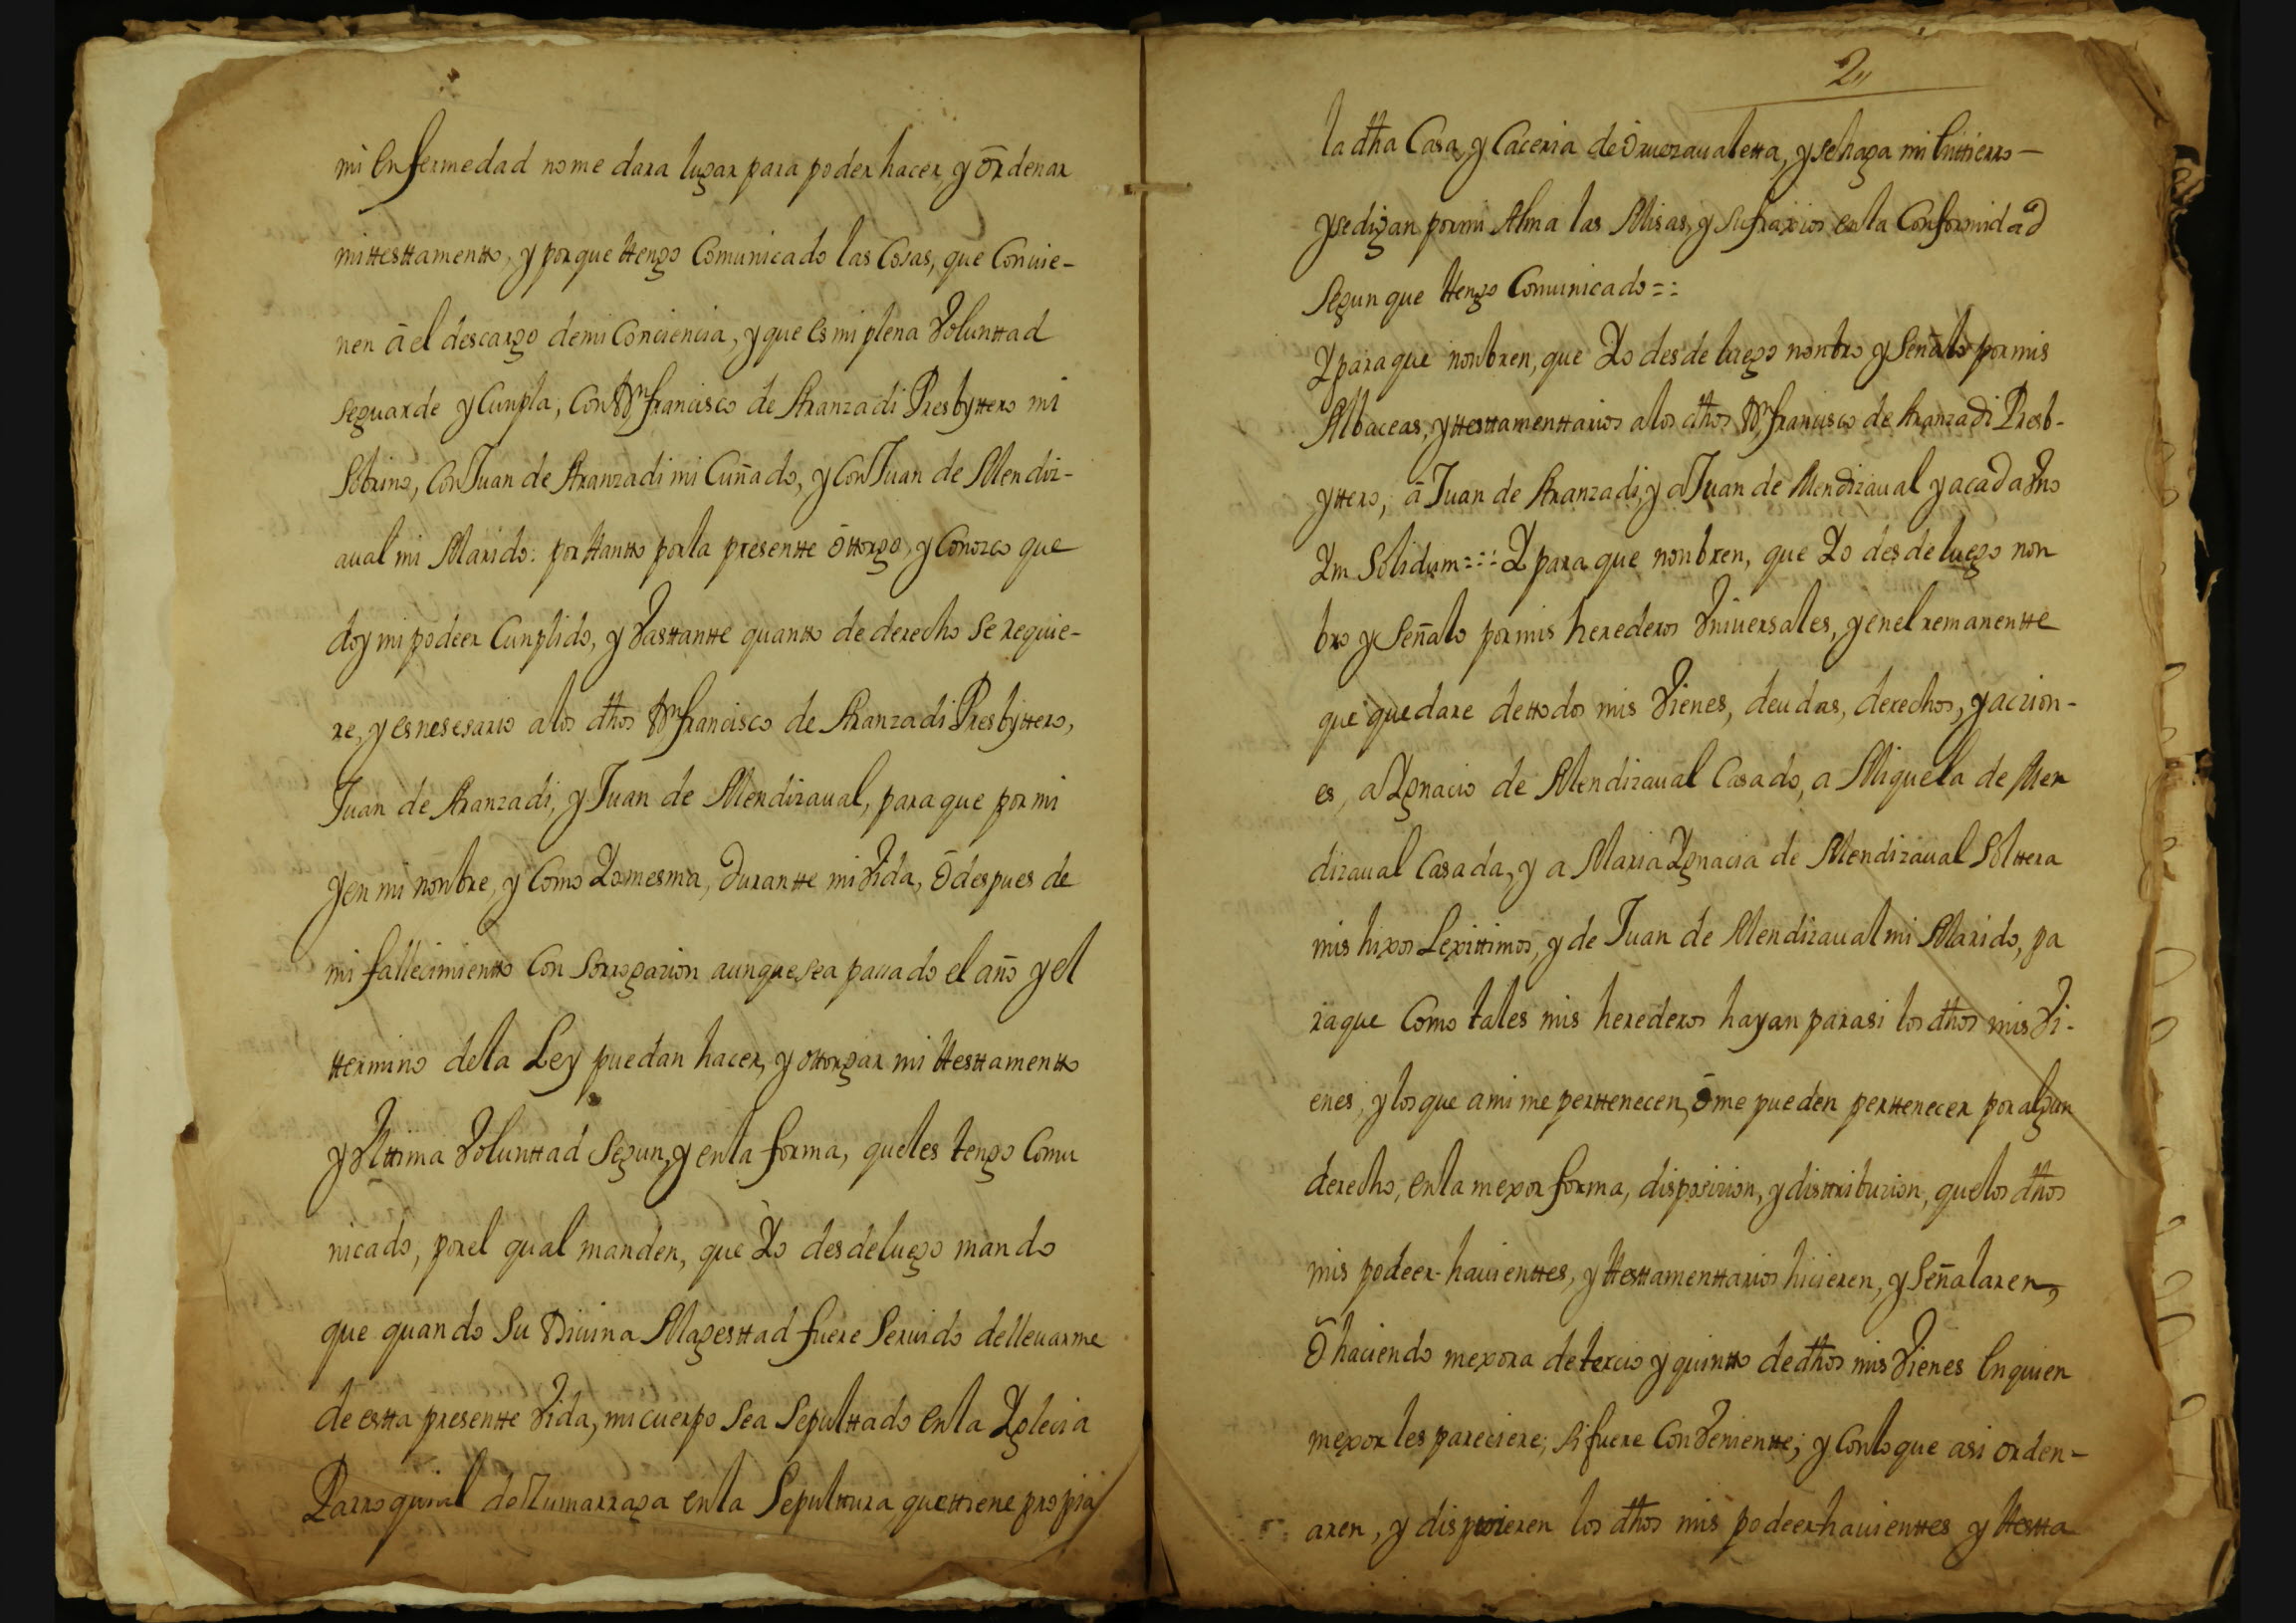 mi enfermedad no me dara lugar para poder hacer, y ordenar
mi ttesttamentto, y porque ttengo Comunicado las Cosas, que Convie-
nen â el descargo de mi Conciencia, y que es mi plena Volunttad
se guarde y Cunpla, con Dn francisco de Aranzadi Presbyttero mi
Sobrino, con Juan de Aranzadi mi Cuñado, y con Juan de Mendiz-
aval mi Marido: por ttantto por la presentte ôttorgo, y Conozco que
doy mi podeer Cunplido, y Vasttantte quantto de derecho se requie-
re, y es nesesario a los dhos Dn francisco de Aranzadi Presbyttero,
Juan de Aranzadi, y Juan de Mendizaval, para que por mi
y en mi nonbre, y Como Yo mesma, durantte mi Vida, ô despues de
mi fallecimientto Con sorrogazion aunque sea passado el año y el
ttermino de la Ley puedan hacer, y ottorgar mi ttesttamentto
y Ulttima Volunttad segun, y en la forma, que les tengo Comu
nicado, por el qual manden, que Yo desde luego mando
que quando Su Divina Magesttad fuere Servido de llevarme
de estta presentte Vida, mi cuerpo sea Sepulttado en la Yglecia
Parroquial de Zumarraga en la Sepulttura, que ttiene propia
2,,
la dha Casa, y Caceria de Oruezavaletta, y se haga mi enttierro —
y se digan por mi Alma las Misas, y sufraxios en la Conformidad
Segun que ttengo Comunicado =:
Y para que nonbren, que Yo desde luego nonbro y Señalo por mis
Albaceas, y ttesttamenttarios a los dhos Dn francisco de Aranzadi Presb-
yttero, â Juan de Aranzadi, y a Juan de Mendizaval y a cada Uno
Yn Solidum =:: Y para que nonbren, que Yo desde luego non
bro y Señalo por mis herederos Universales, y en el remanentte
que quedare de ttodos mis Vienes, deudas, derechos, y aczion-
es, a Ygnacio de Mendizaval Casado, a Miguela de Men
dizaval Casada, y a Maria Ygnacia de Mendizaval Solttera
mis hixos Lexittimos, y de Juan de Mendizaval mi Marido, pa
raque Como tales mis herederos hayan para si los dhos mis Vi-
enes, y los que a mi me perttenecen, ô me pueden perttenecer por algun
derecho, en la mexor forma, disposizion, y disttribuzion, que los dhos
mis podeer-havienttes, y ttesttamenttarios hicieren, y Señalaren,
Ô haciendo mexora de tercio y quintto de dhos mis Vienes en quien
mexor les pareciere, si fuere Convenientte; y Con lo que asi orden-
aren, y dispusieren los dhos mis podeer-havienttes y ttestta